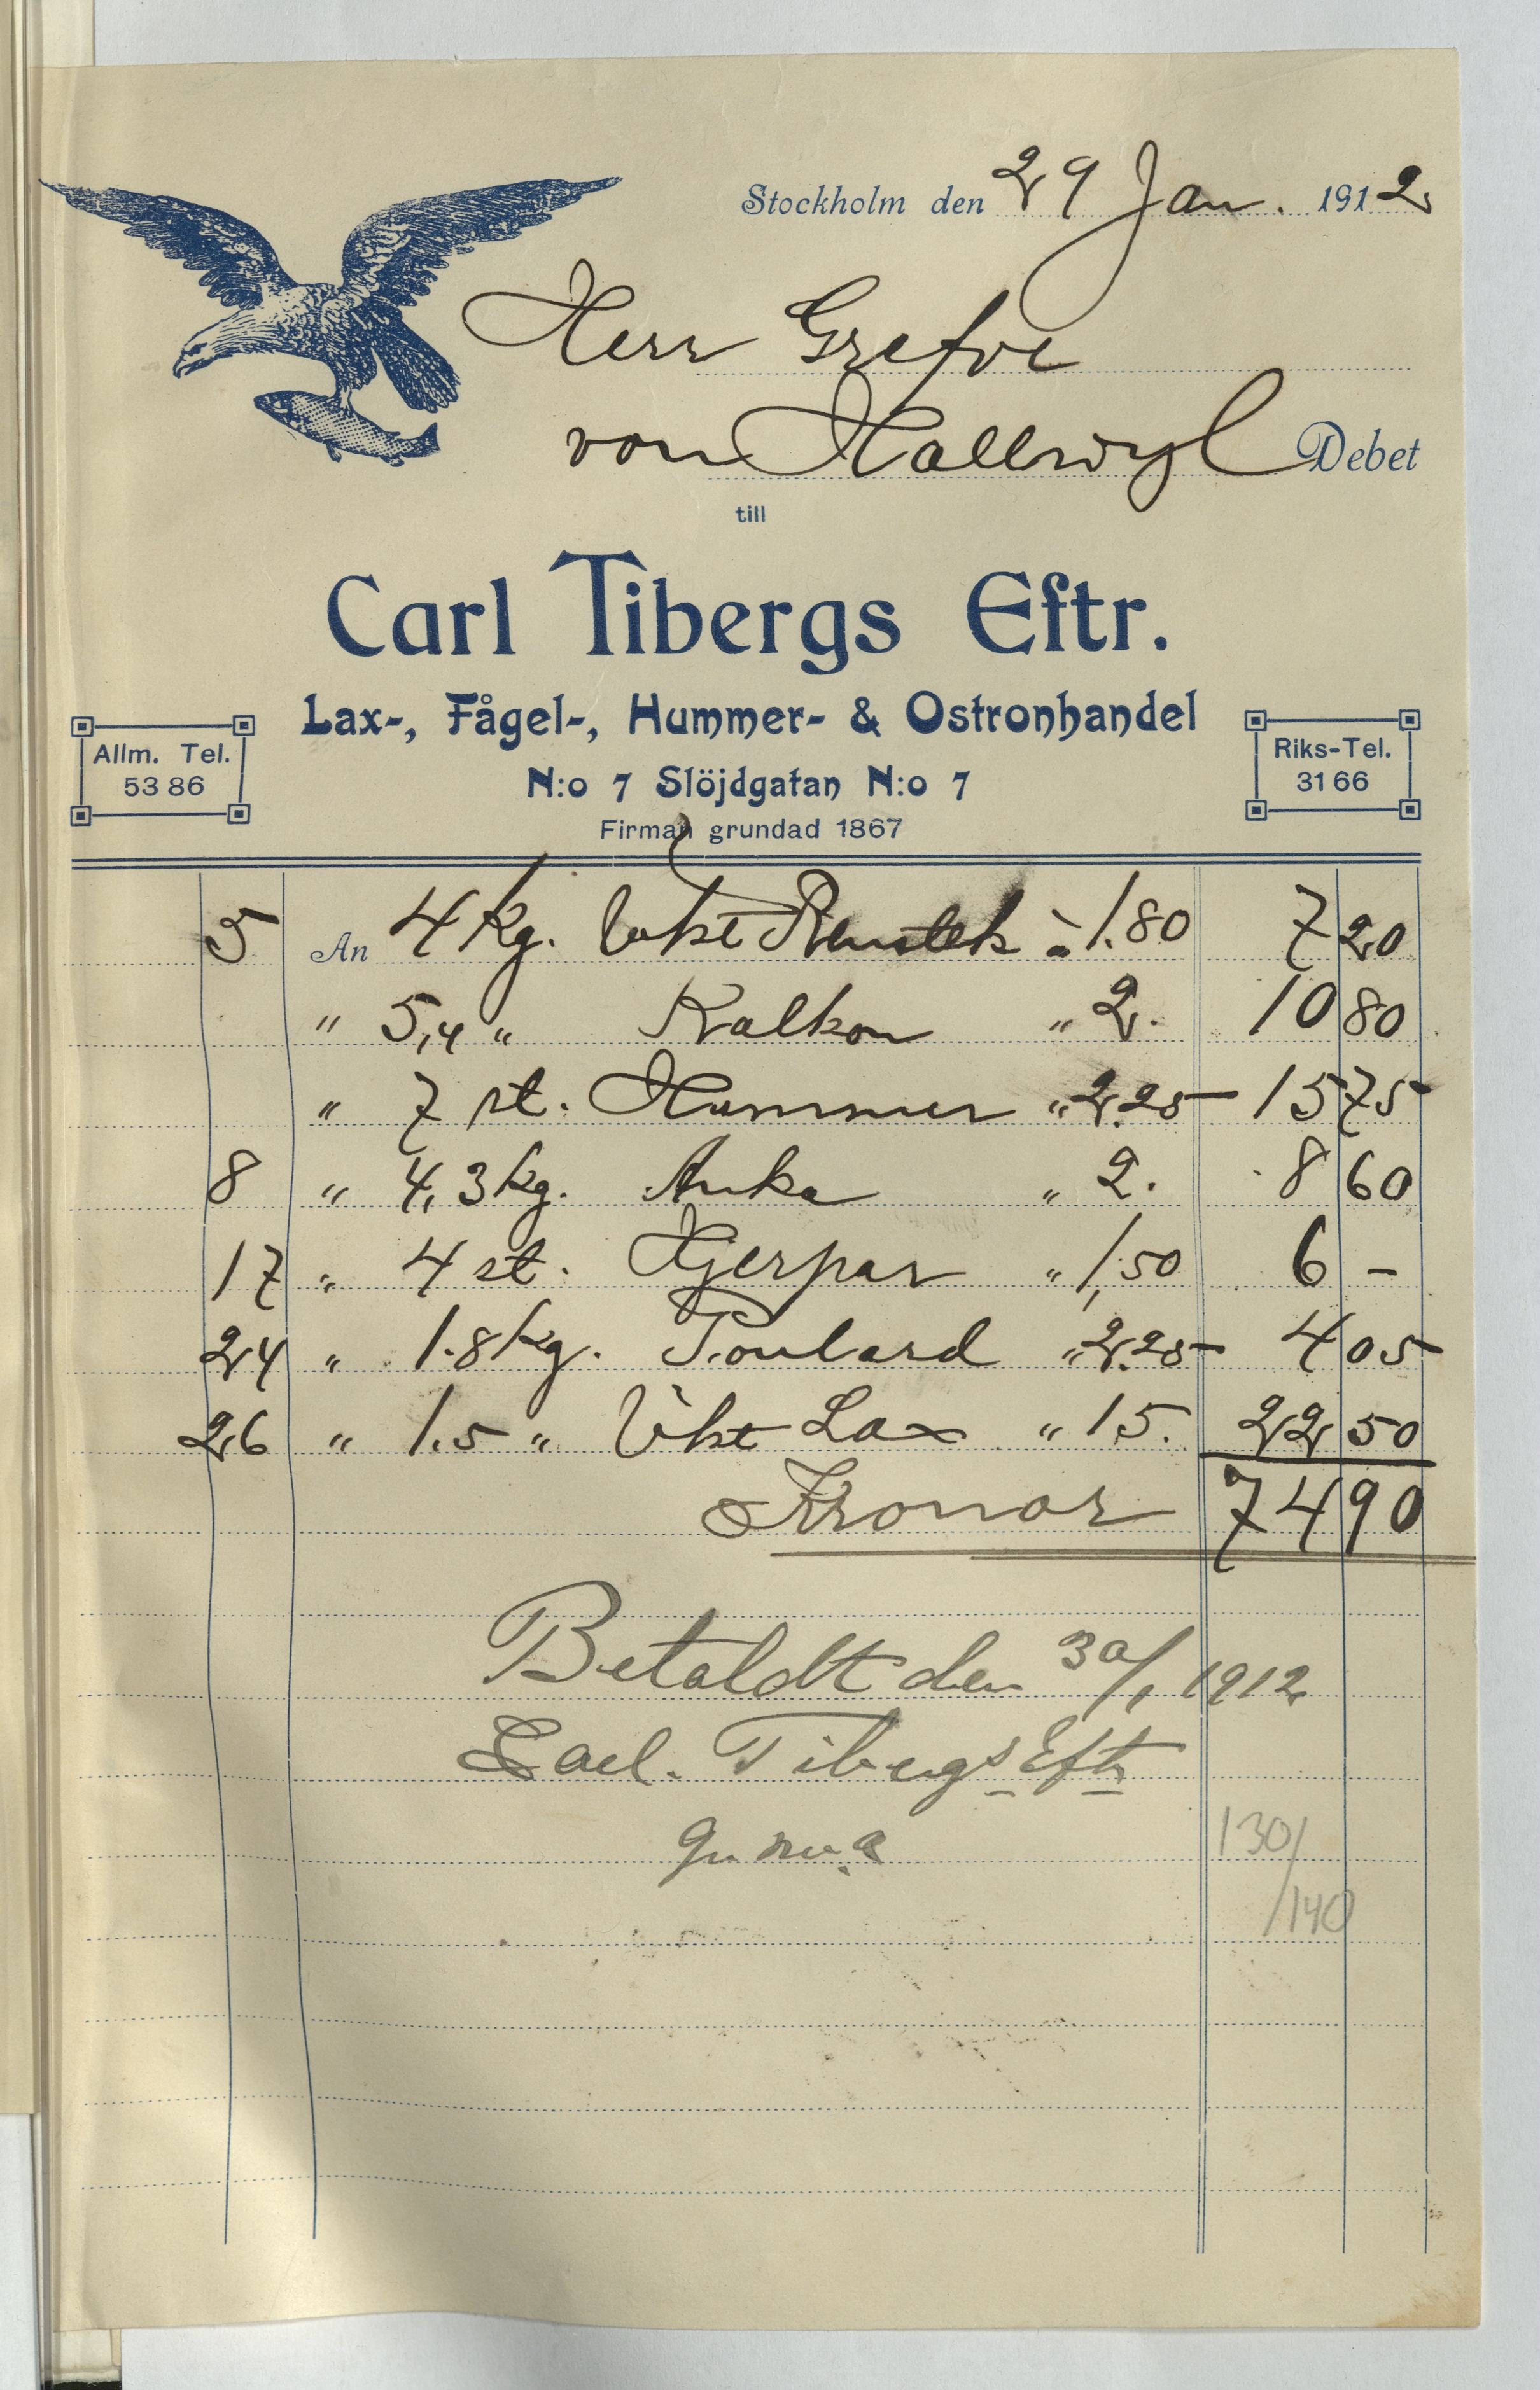 Stockholm den 29 Jan. 1912
Herr Grefve
von Hallwyl Debet
till
Carl Tibergs Eftr.
Lax-, Fågel-, Hummer- & Ostronhandel
Allm. Tel.
53 86
Riks-Tel.
31 66
N:o 7 Slöjdgatan N:o 7
Firman grundad 1867
5 An 4 kg. Renstek à 1.80 7 20
" 5,4 " Kalkon " 2. 10 80
" 7 st. Hummer " 2.25 15 75
8 " 4,3 kg. Anka " 2. 8 60
17 " 4 st. Hjerpar " 1,50 6 -
24 " 1.8 kg. Poulard " 2.25 4 05
26 " 1.5 " Lax " 15. 22 50
Kronor 74 90
Betaldt den 30/1 1912
Carl Tibergs Eftr
130/
/140